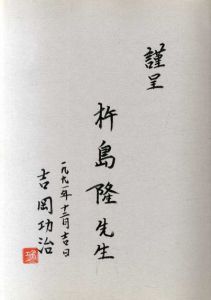 謹呈
杵島隆先生
一九九一年十二月吉日
吉岡功治